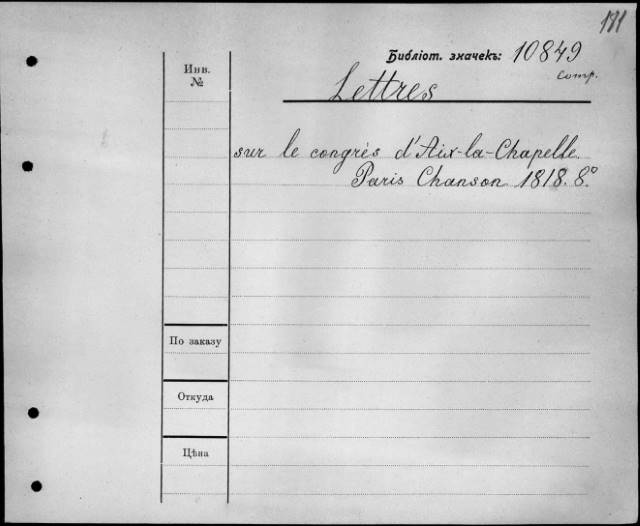 181
Библіот. значекъ: 10849
Comp.
Инв.
№
Lettres
sur le congrès d'Aix-la-Chapelle.
Paris Chanson 1818. 8º
По заказу
Откуда
Цѣна